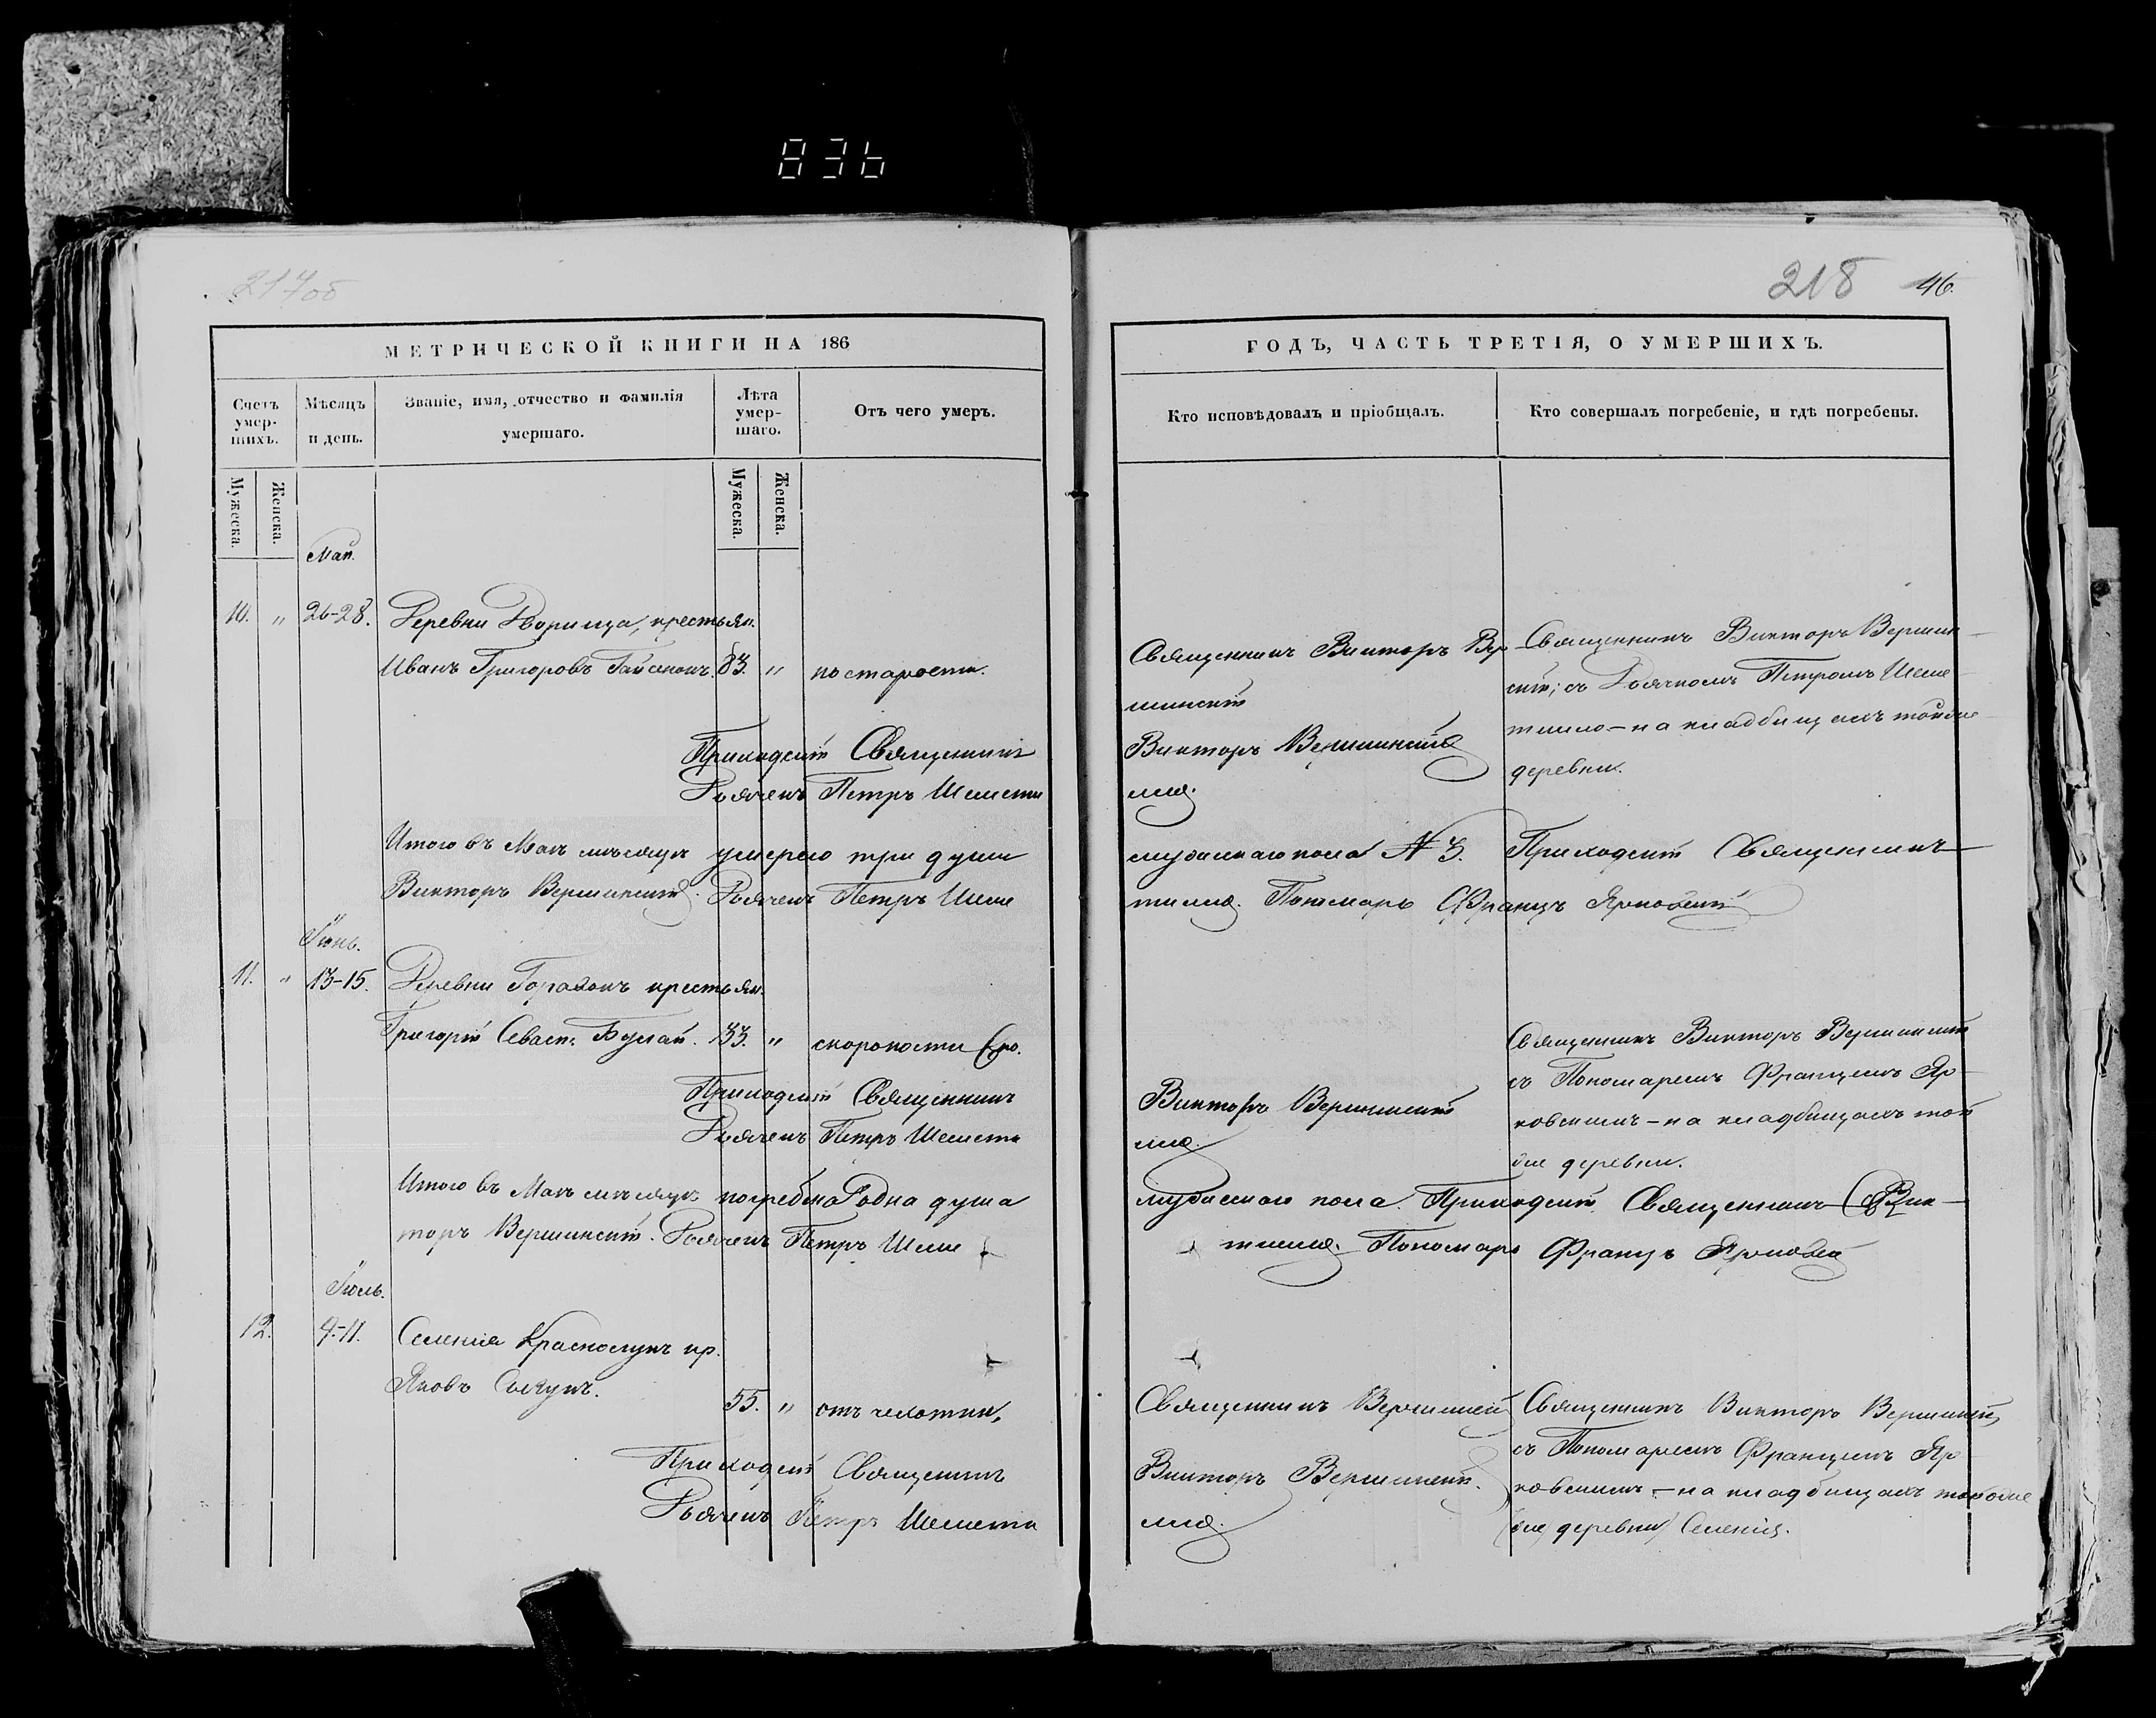 836
217об
218 46.
МЕТРИЧЕСКОЙ КНИГИ НА 186
Счетъ умер-шихъ.
Мѣсяцъ и день.
Званіе, имя, отчество и фамилія умершаго.
Лѣта умер-шаго.
Отъ чего умеръ.
Мужеска.
Женска.
Мужеска.
Женска.
Май.
10. " 26-28. Деревни Дворища, крестьян.
Иванъ Григоровъ 83. " по старости.
Приходскій Священникъ
Дьячекъ Петръ Шемети
Итого въ Маѣ мѣсяцѣ умерло три души
Викторъ Вершинскій. Дьячекъ Петръ Шеме
Іюнь.
11. " 13-15. Деревни крестьян.
Григорій Севаст. 33. " скоропости
Приходскій Священникъ
Дьячекъ Петръ Шемети
Итого въ Маѣ мѣсяцѣ погребено одна душа
торъ Вершинскій. Дьячекъ Петръ Шеме
Іюль.
12. 9-11. Селенія Краснолукъ кр.
Яковъ
55. " отъ чахотки,
Приходскій Священникъ
Дьячекъ Петръ Шемети
ГОДЪ, ЧАСТЬ ТРЕТІЯ, О УМЕРШИХЪ.
Кто исповѣдовалъ и пріобщалъ.
Кто совершалъ погребеніе, и гдѣ погребены.
Священникъ Викторъ Вер
шинскій
Викторъ Вершинскій
лло.
Священникъ Викторъ Вершин
скій; съ Дьячкомъ Петромъ Шеме
тилло - на кладбищахъ тойже
деревни.
мужескаго пола № 3. Приходскій Священникъ
тилло. Пономарь Францъ Ярковскій
Викторъ Вершинскій
лло.
Священникъ Викторъ Вершинскій
съ Пономаремъ Францемъ Яр
ковскимъ - на кладбищахъ той
же деревни.
мужескаго пола. Приходскій Священникъ Вик-
тилло. Пономарь Францъ
Священникъ
Викторъ Вершинскій.
лло.
Священникъ Викторъ
съ Пономаремъ Францемъ Яр
ковскимъ - на кладбищахъ
(же деревни) Селенія.